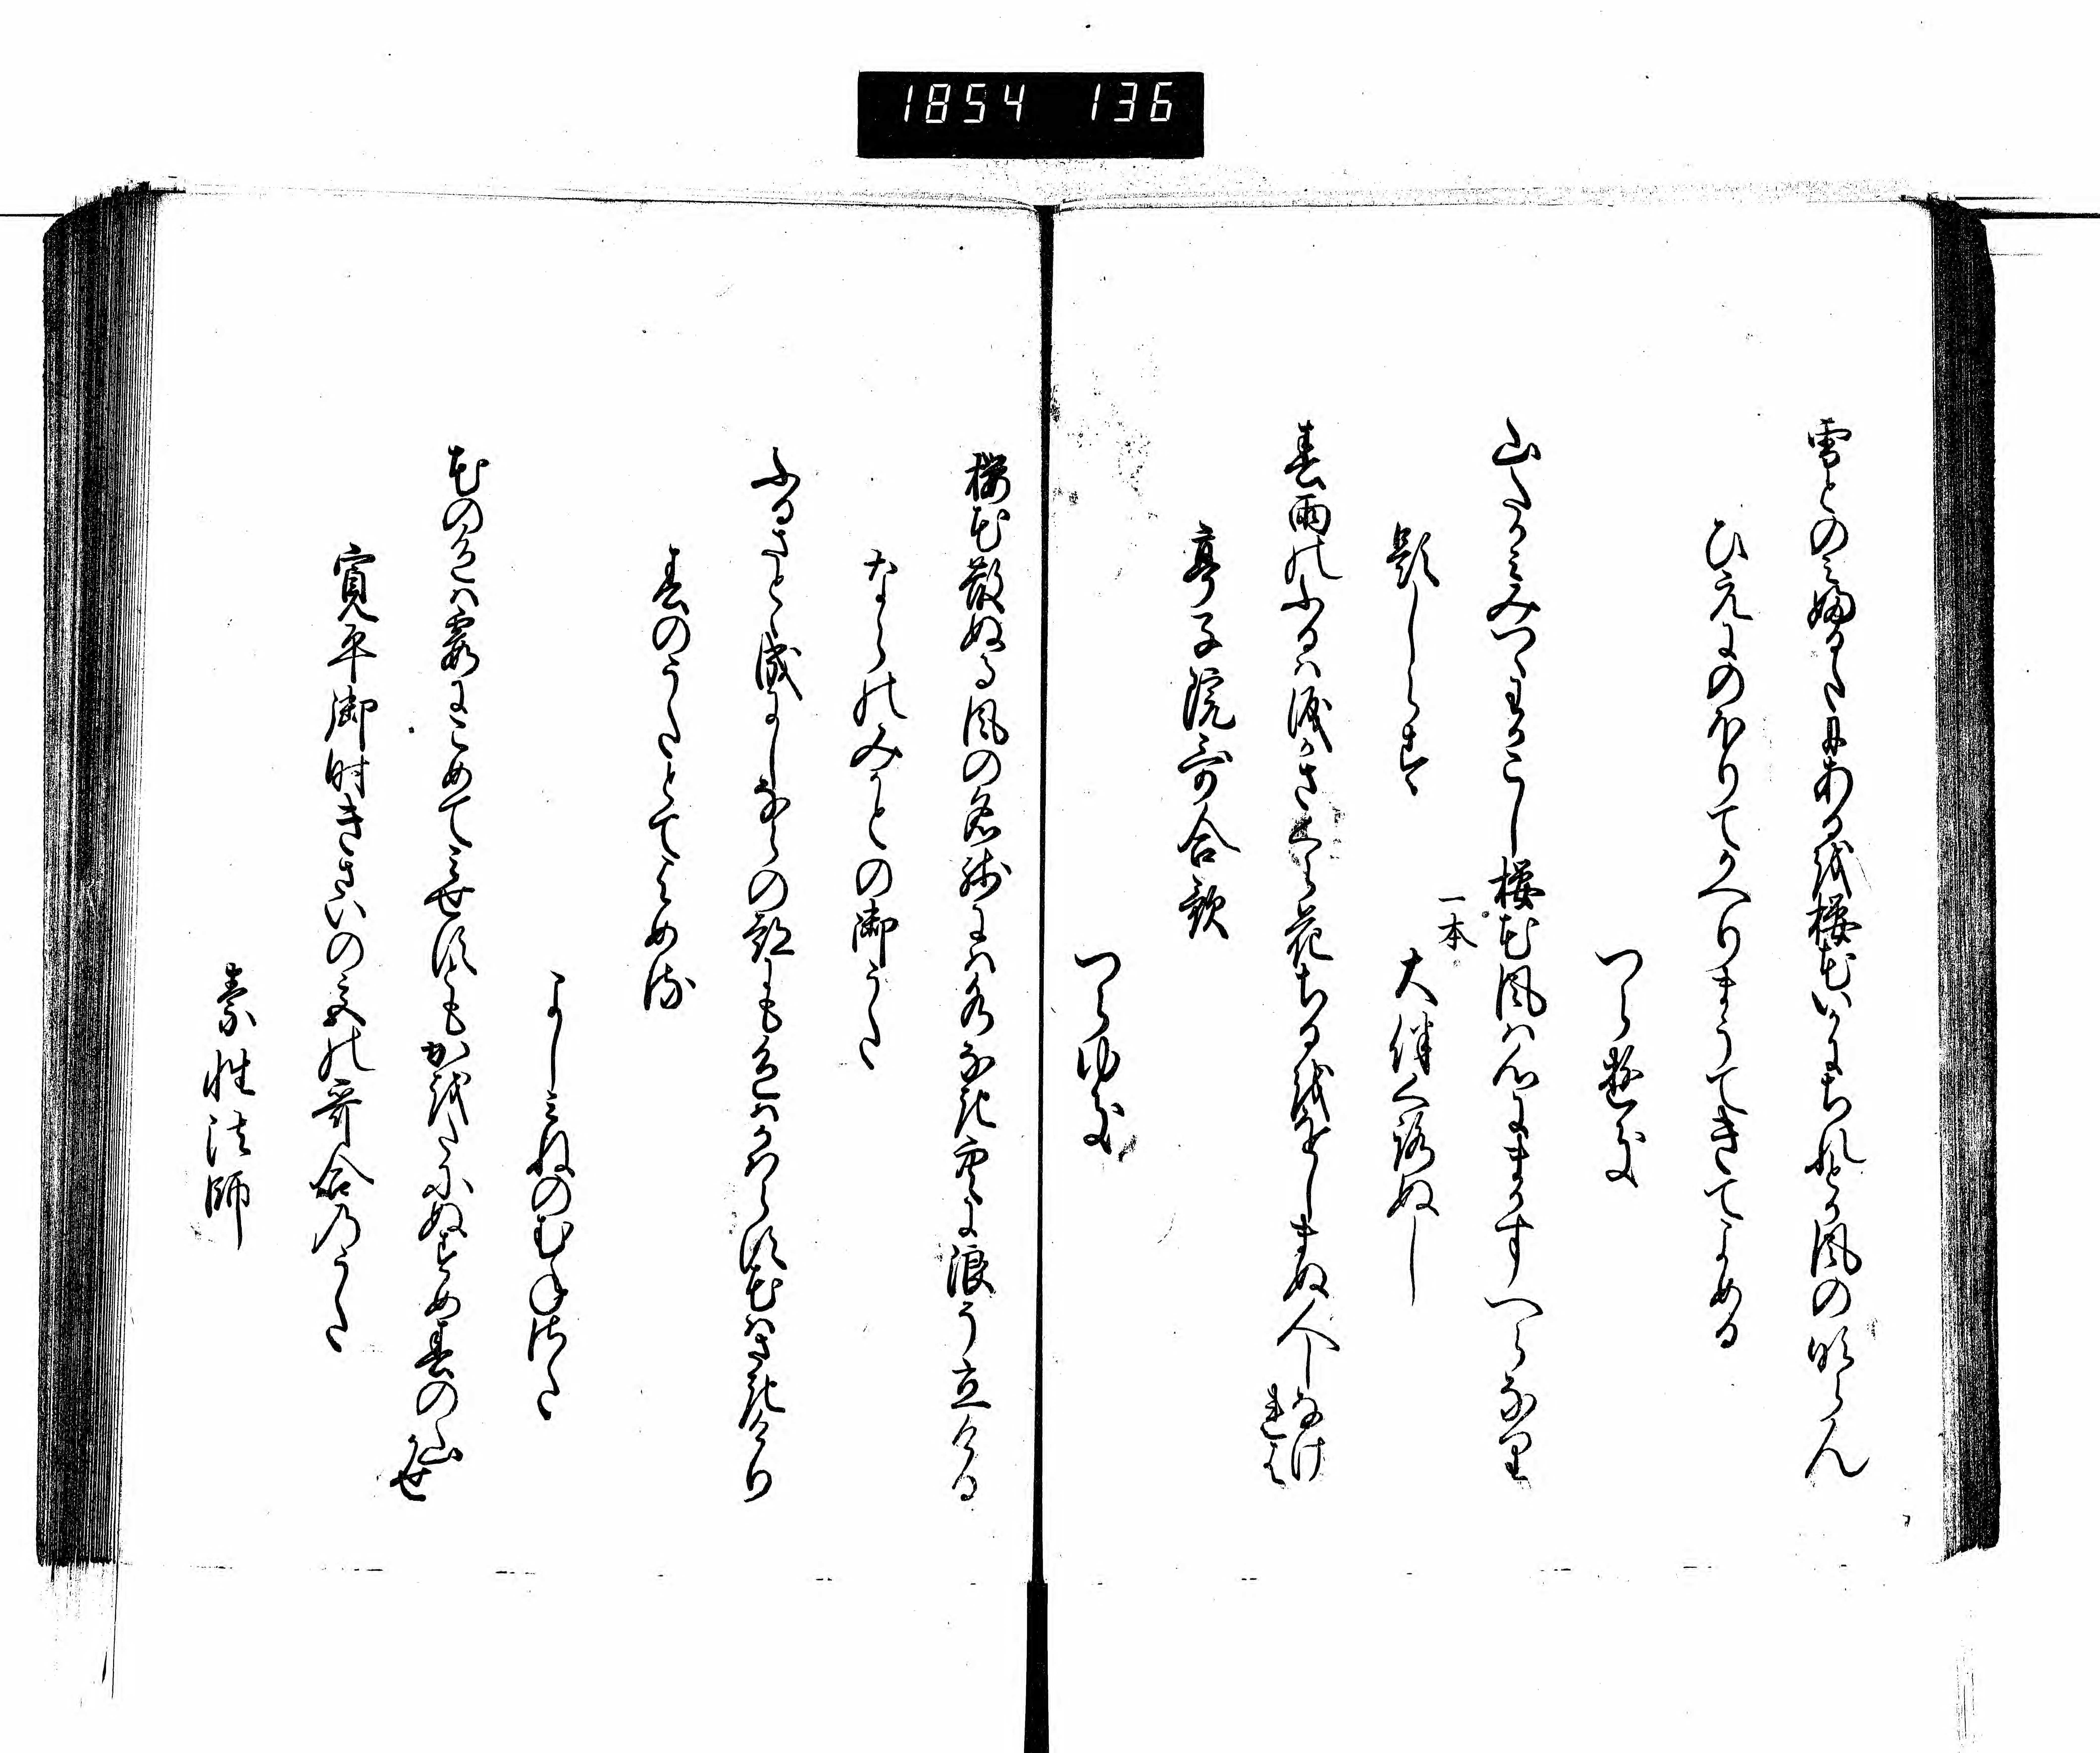 1854 136
雪とのみ婦るたにある越桜花いかにちれとか風の吹らん
ひえにのほりてかへりまうてきてよめる
つらゆき
山たかみみつゝわかこし桜花風は心にまかすへらなり
題しらす
一本
大伴くろぬし
春雨のふるは涙かさくら花ちる越をしまぬ人しなけ
れは
亭子院哥合歌
つらゆき
桜花散ぬる風の名残には水なき空に浪う立ける
ならのみかとの御うた
ふるさとゝ成にしならの都にも色はかはらす花はさきけり
春のうたとてよめる
よしみねのむねさた
花の色は霞にこめてみせすともか越たにぬすめ春の山
かせ
寛平御時きさいの宮の哥合のうた
素性法師